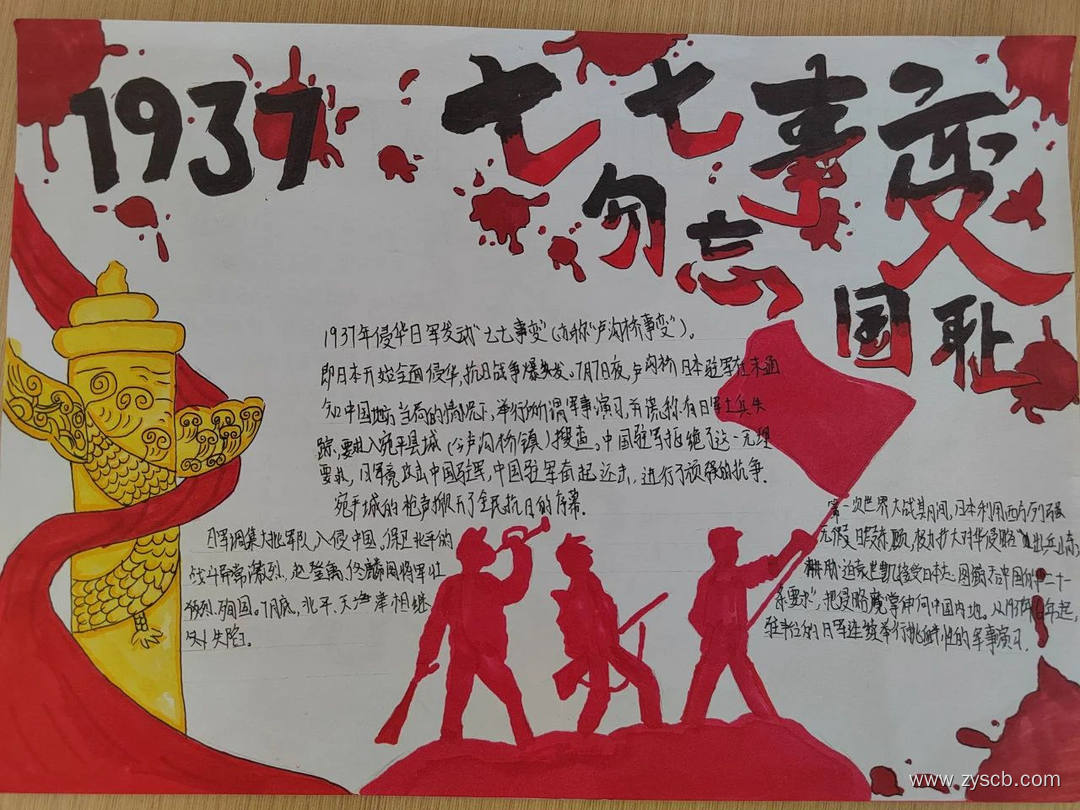 1937
七七事变
勿忘
国耻
1937年侵华日军发动“七七事变”(亦称“卢沟桥事变”)。
即日本开始全面侵华,抗日战争爆发。7月7日夜,卢沟桥日本驻军在未通
知中国地方当局的情况下,举行所谓军事演习,并谎称有日军士兵失
踪,要进入宛平县城(今卢沟桥镇)搜查。中国驻军拒绝了这一无理
要求,日军竟攻击中国驻军,中国驻军奋起还击,进行了顽强的抗争.
宛平城的枪声掀开了全民抗日的序幕.
日军调集大批军队,入侵中国。保卫北平的
战斗异常激烈.赵登禹,佟麟阁将军壮
烈殉国。7月底,北平、天津相继
失陷。
第一次世界大战其期间,日本利用西方列强
无暇东顾,极力扩大对华侵略
迫袁世凯接受日本
条要求”,把侵略魔掌伸向中国内地。从
的日军连续举行挑衅性的军事演习.
www.zyscb.com